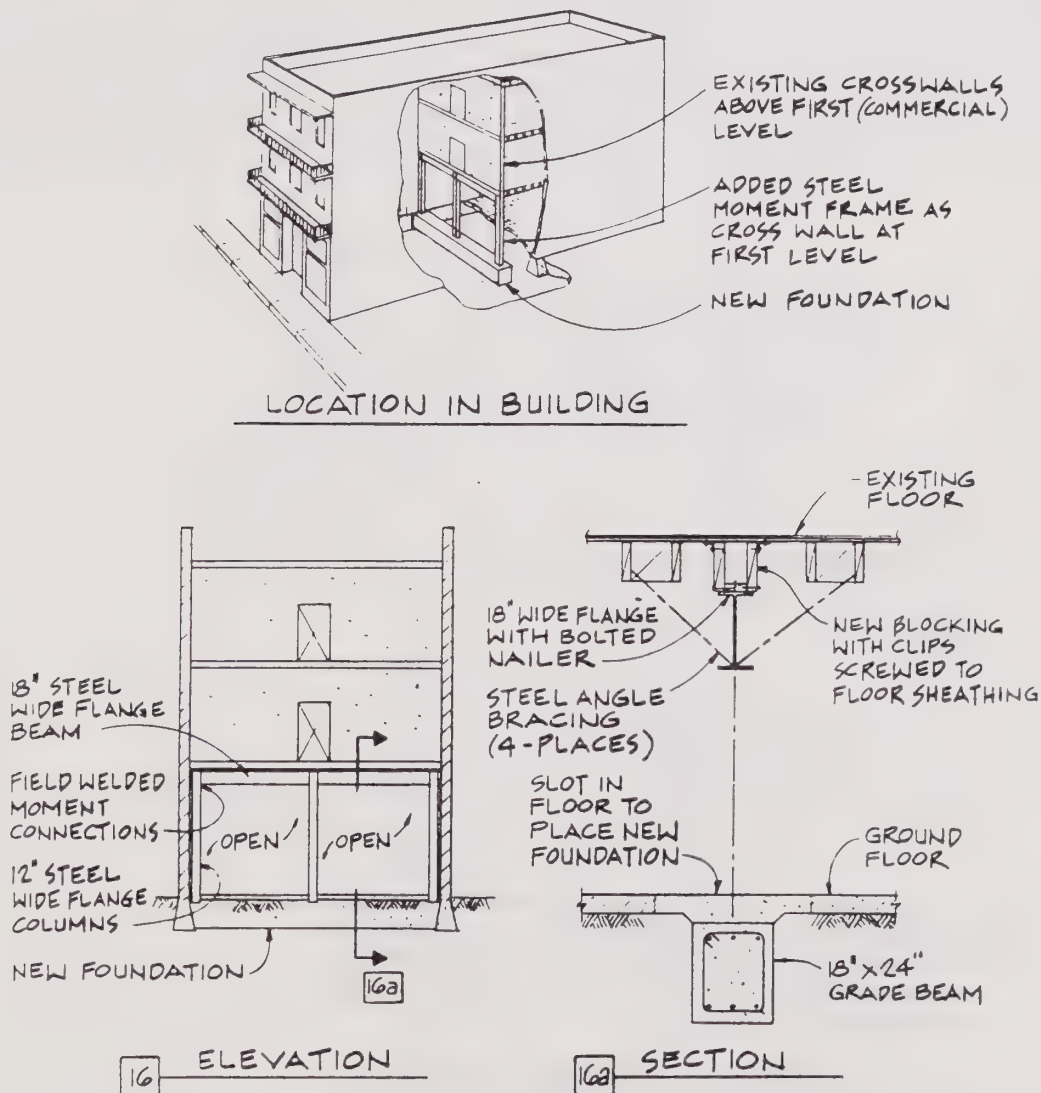 EXISTING CROSSWALLS
ABOVE FIRST (COMMERCIAL)
LEVEL
ADDED STEEL
MOMENT FRAME AS
CROSS WALL AT
FIRST LEVEL
NEW FOUNDATION
LOCATION IN BUILDING
18" STEEL
WIDE FLANGE
BEAM
FIELD WELDED
MOMENT
CONNECTIONS
12" STEEL
WIDE FLANGE
COLUMNS
NEW FOUNDATION
OPEN
OPEN
16a
16 ELEVATION
EXISTING
FLOOR
18" WIDE FLANGE
WITH BOLTED
NAILER
STEEL ANGLE
BRACING
(4-PLACES)
NEW BLOCKING
WITH CLIPS
SCREWED TO
FLOOR SHEATHING
SLOT IN
FLOOR TO
PLACE NEW
FOUNDATION
GROUND
FLOOR
18" x 24"
GRADE BEAM
16a SECTION